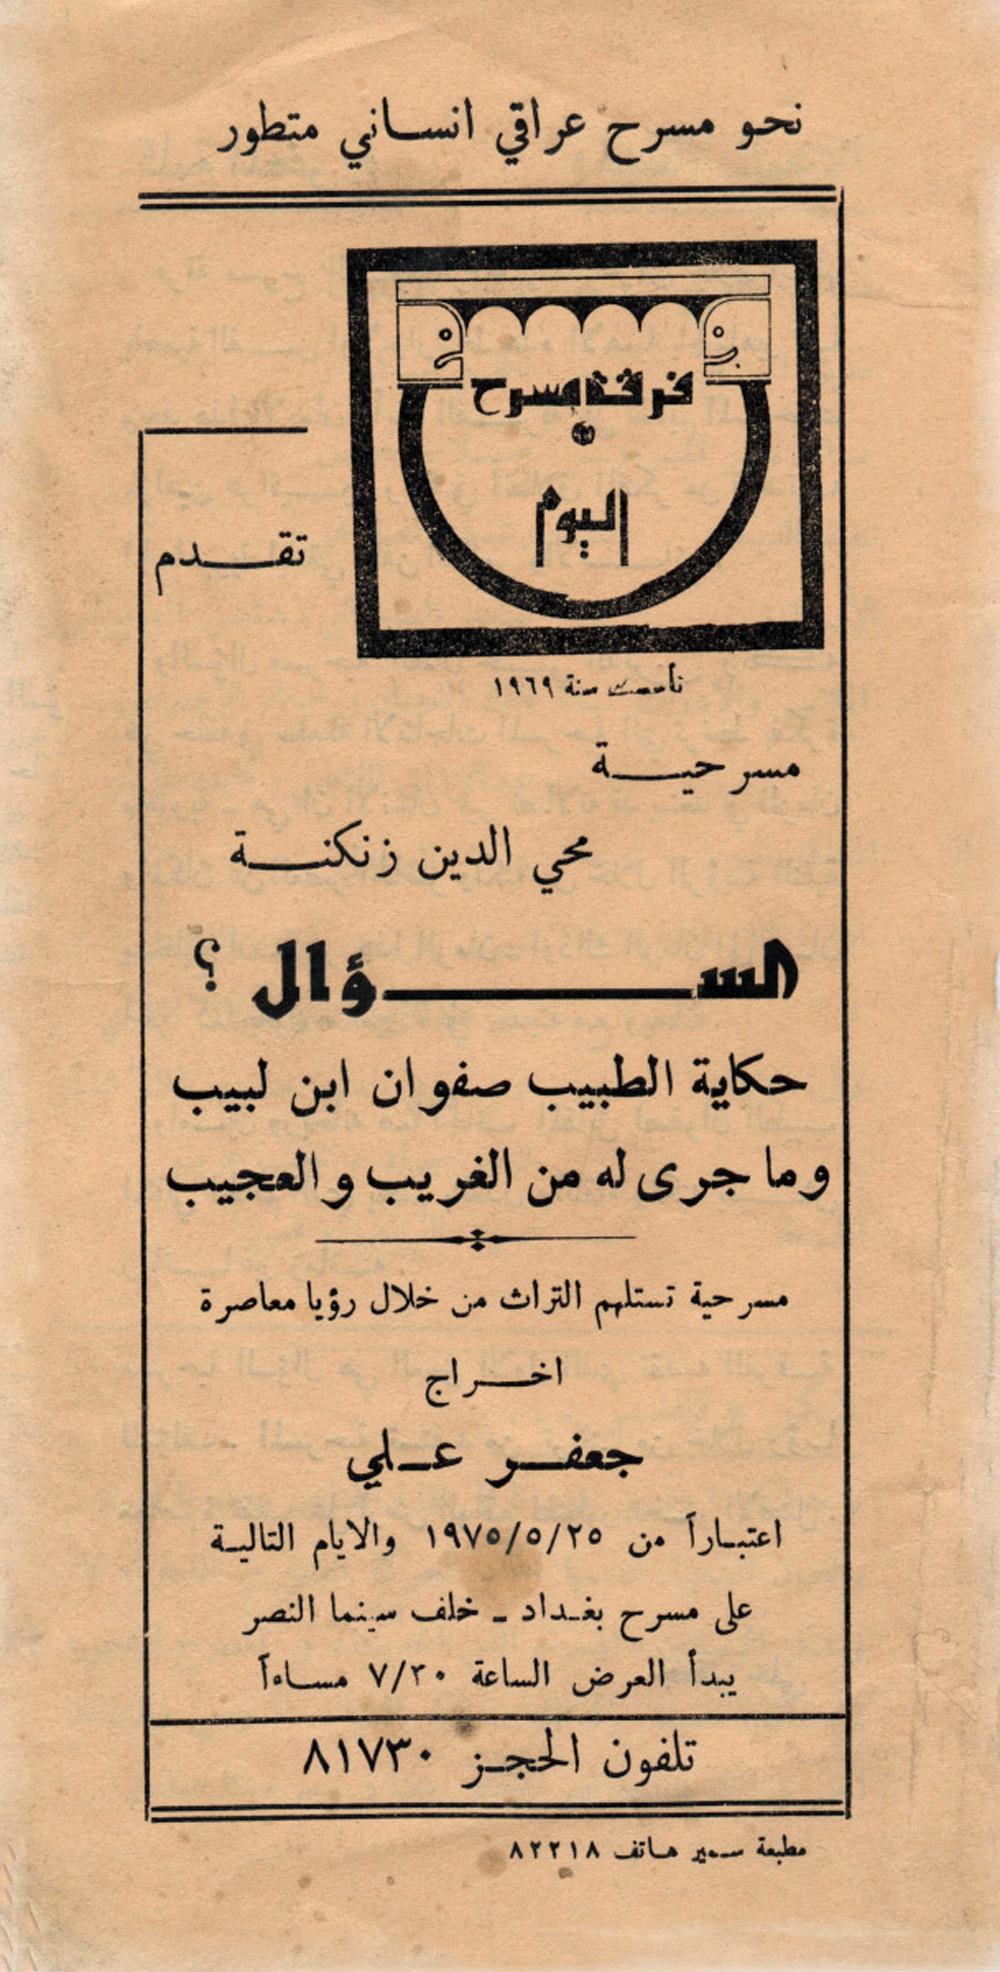 نحو مسرح عراقي انساني متطور
فرقة مسرح
اليوم
تقدم
تأسست سنة ١٩٦٩
مسرحية
محي الدين زنكنة
السؤال ؟
حكاية الطبيب صفوان ابن لبيب
وما جرى له من الغريب والعجيب
مسرحية تستلهم التراث من خلال رؤيا معاصرة
اخراج
جعفر علي
اعتباراً من ١٩٧٥/٥/٢٥ والايام التالية
على مسرح بغداد - خلف سينما النصر
يبدأ العرض الساعة ٧/٣٠ مساءاً
تلفون الحجز ٨١٧٣٠
مطبعة سمير هاتف ٨٢٢١٨